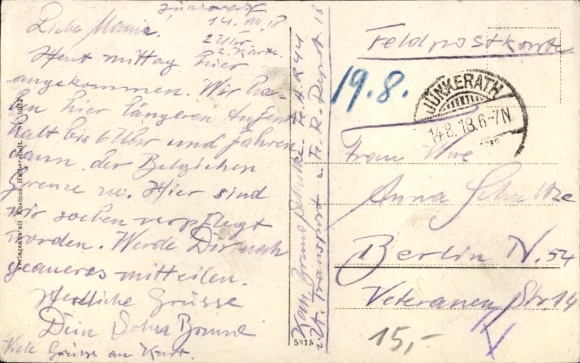 Jünkerath
14. VIII. 18
2 Uhr
2. Karte.
Liebe Mama.
Heut mittag hier
angekommen. Wir ha-
ben hier längeren Aufent
halt bis 6 Uhr und fahren
dann der Belgischen
Grenze zu. Hier sind
wir soeben verpflegt
worden. Werde Dir noch
genaueres mitteilen.
Herzliche Grüsse
Dein Sohn Bruno
Viele Grüsse an Kurt.
Kan. Bruno
Transport
5815
Feldpostkarte
19.8.
JÜNKERATH
14.8.18.6-7N
Frau Wwe
Anna Schultze
Berlin N. 54
Veteranen Str. 14
15,-